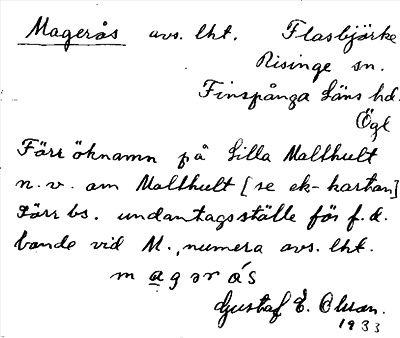 Magerås avs. lht. Flasbjörke
Risinge sn.
Finspånga Läns hd.
Ögl
Förr öknamn på Lilla Mallhult
n. v. om Mallhult [se ek-kartan]
Förr bs. undantagsställe för f. d.
bonde vid M., numera avs. lht.
magərås
Gustaf E. Olsson.
1933